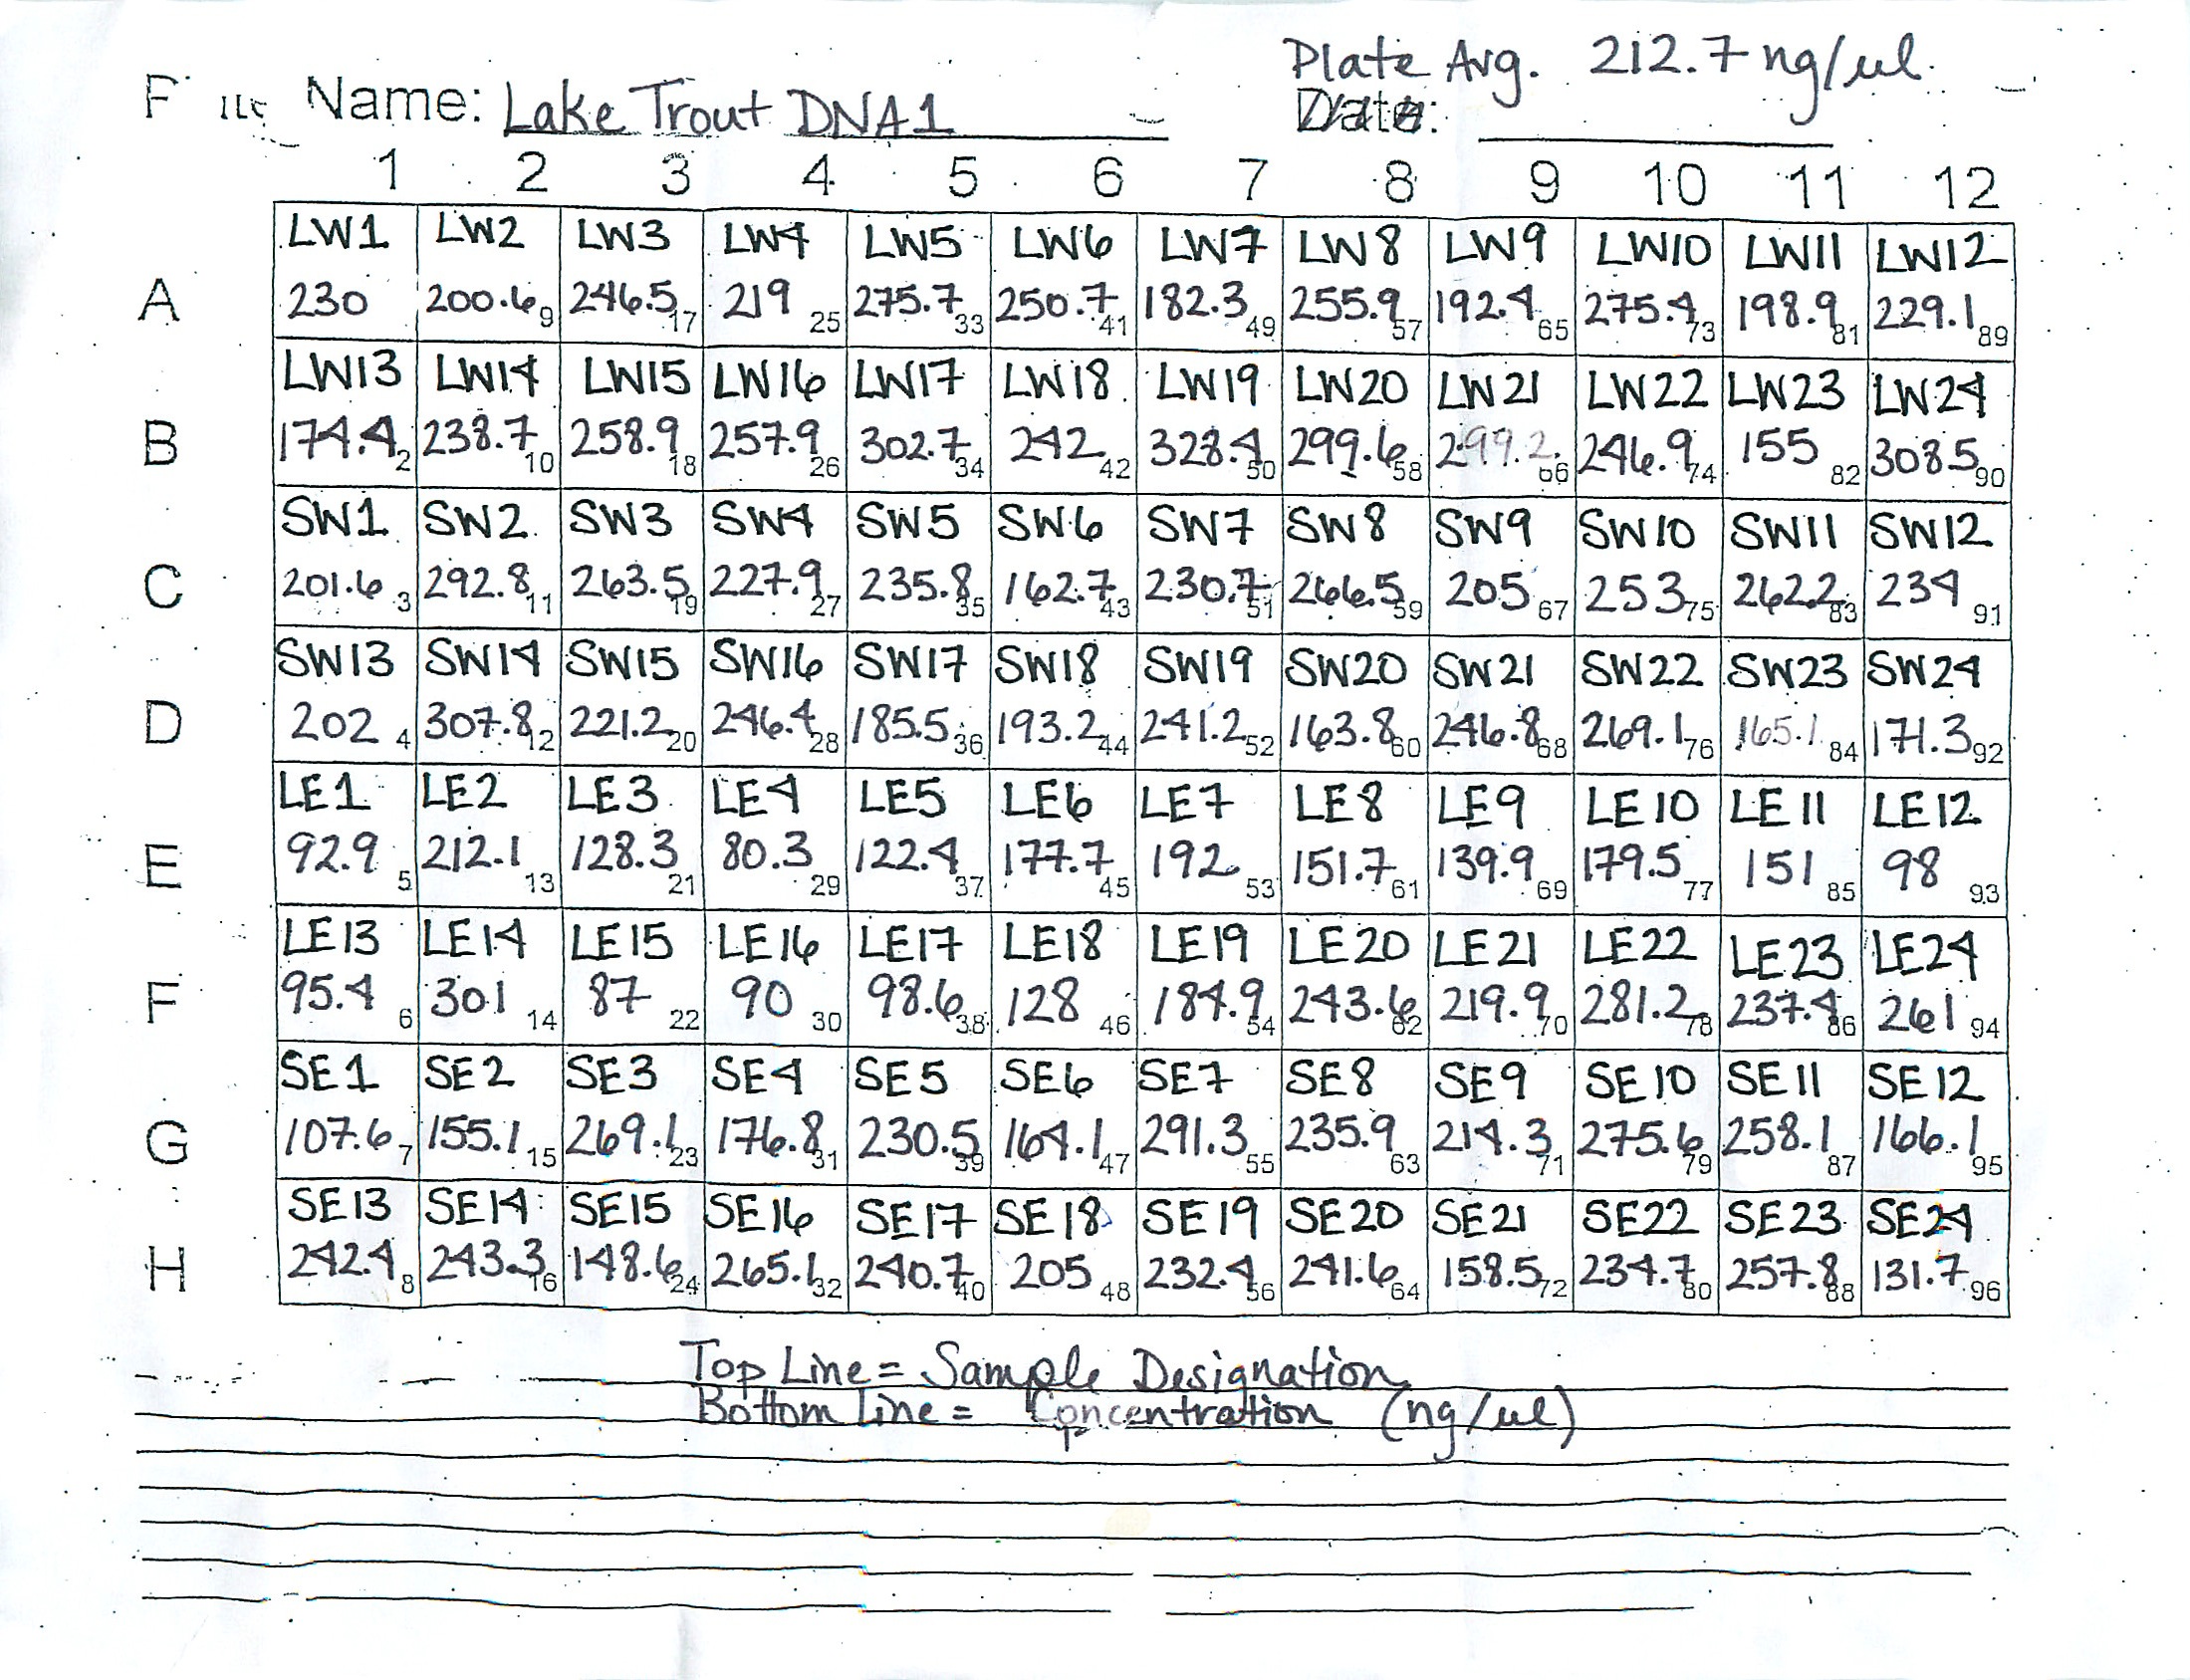 Plate Avg. 212.7 ng/ul
File Name: Lake Trout DNA1 Date:
1 2 3 4 5 6 7 8 9 10 11 12
LW1 LW2 LW3 LW4 LW5 LW6 LW7 LW8 LW9 LW10 LW11 LW12
A 230 200.6 9 246.5 17 219 25 275.7 33 250.7 41 182.3 49 255.9 57 192.4 65 275.4 73 198.9 81 229.1 89
LW13 LW14 LW15 LW16 LW17 LW18 LW19 LW20 LW21 LW22 LW23 LW24
B 174.4 2 238.7 10 258.9 18 257.9 26 302.7 34 242 42 328.4 50 299.6 58 299.2 66 246.9 74 155 82 308.5 90
SW1 SW2 SW3 SW4 SW5 SW6 SW7 SW8 SW9 SW10 SW11 SW12
C 201.6 3 292.8 11 263.5 19 227.9 27 235.8 35 162.7 43 230.7 51 266.5 59 205 67 253 75 262.2 83 234 91
SW13 SW14 SW15 SW16 SW17 SW18 SW19 SW20 SW21 SW22 SW23 SW24
D 202 4 307.8 12 221.2 20 246.4 28 185.5 36 193.2 44 241.2 52 163.8 60 246.8 68 269.1 76 165.1 84 171.3 92
LE1 LE2 LE3 LE4 LE5 LE6 LE7 LE8 LE9 LE10 LE11 LE12
E 92.9 5 212.1 13 128.3 21 80.3 29 122.4 37 177.7 45 192 53 151.7 61 139.9 69 179.5 77 151 85 98 93
LE13 LE14 LE15 LE16 LE17 LE18 LE19 LE20 LE21 LE22 LE23 LE24
F 95.4 6 301 14 87 22 90 30 98.6 38 128 46 184.9 54 243.6 62 219.9 70 281.2 78 237.4 86 261 94
SE1 SE2 SE3 SE4 SE5 SE6 SE7 SE8 SE9 SE10 SE11 SE12
G 107.6 7 155.1 15 269.1 23 176.8 31 230.5 39 164.1 47 291.3 55 235.9 63 214.3 71 275.6 79 258.1 87 166.1 95
SE13 SE14 SE15 SE16 SE17 SE18 SE19 SE20 SE21 SE22 SE23 SE24
H 242.4 8 243.3 16 148.6 24 265.1 32 240.7 40 205 48 232.4 56 241.6 64 158.5 72 234.7 80 257.8 88 131.7 96
Top Line = Sample Designation
Bottom Line = Concentration (ng/ul)